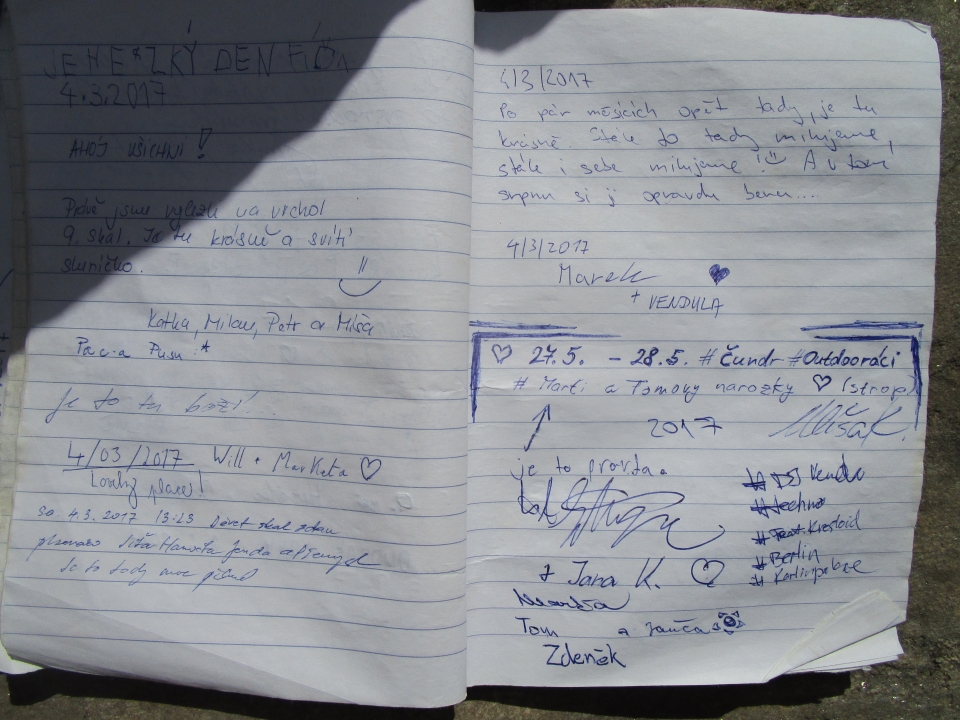 JE HEZKÝ DEN
4.3.2017
AHOJ VŠICHNI!
Právě jsme vylezli na vrchol
9. skal. Je tu krásně a svítí
sluníčko.
Katka, Milan, Petr a Míša
Pac a Pusu :*
Je to tu boží!
4/03/2017 Will + Marketa ♡
Lovely place!
so. 4.3.2017 13:23
Je to tady moc pěkné
4/3/2017
Po pár měsících opět tady, je tu
krásně. Stále to tady milujeme,
stále i sebe milujeme! A v tom
srpnu si ji opravdu beru...
4/3/2017
Marek ♥
+ VENDULA
♡ 27.5. - 28.5. #Čundr #Outdooráci
# Marti a Tomovy narozky ♡ (strop)
2017
je to pravda.
+ Jana K. ♡
Tom a Janča
Zdeněk
# DJ Vendu
# techno
# Berlin